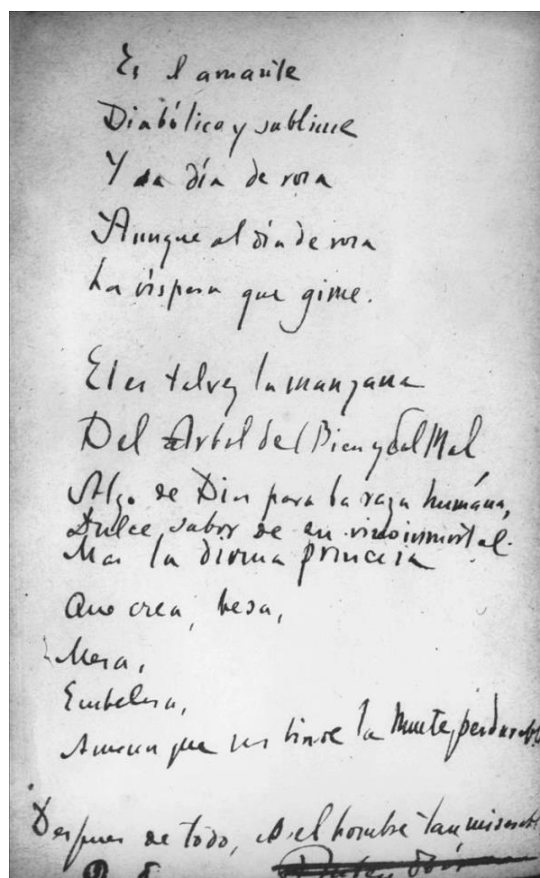 Es el amante
Diabólico y sublime
Y da día de rosa
Aunque al día de rosa
La víspera que gime.
El es talvez la manzana
Del Arbol del Bien y del Mal
Algo de Dios para la raza humána,
Dulce sabor de un vino inmortal.
Mas la divina princesa
Que crea, besa,
Mesa,
Embelesa,
que nos brinde la Muerte, perdurable
Despues de todo, es el hombre tan miserable